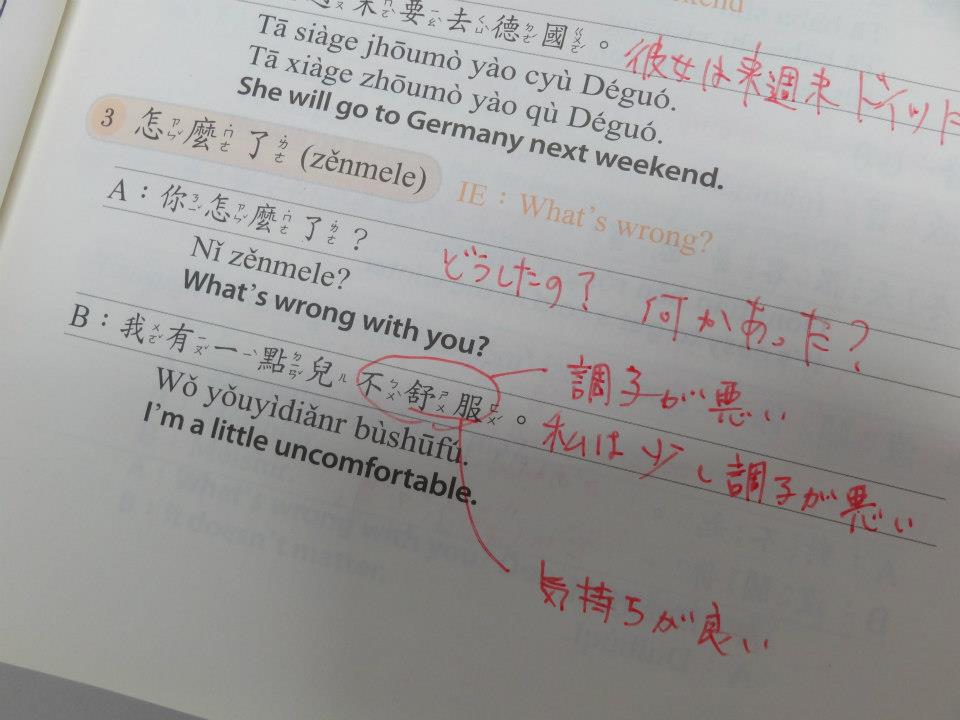 末要去德國。
彼女は来週末ドイツ
Tā siàge jhōumò yào cyù Déguó.
Tā xiàge zhōumò yào qù Déguó.
She will go to Germany next weekend.
3 怎麼了 (zěnmele) IE：What's wrong?
A：你怎麼了？
Nǐ zěnmele?
どうしたの？ 何かあった？
What's wrong with you?
B：我有一點兒不舒服。
調子が悪い
Wǒ yǒuyìdiǎnr bùshūfú.
私は少し調子が悪い
I'm a little uncomfortable.
気持ちが良い